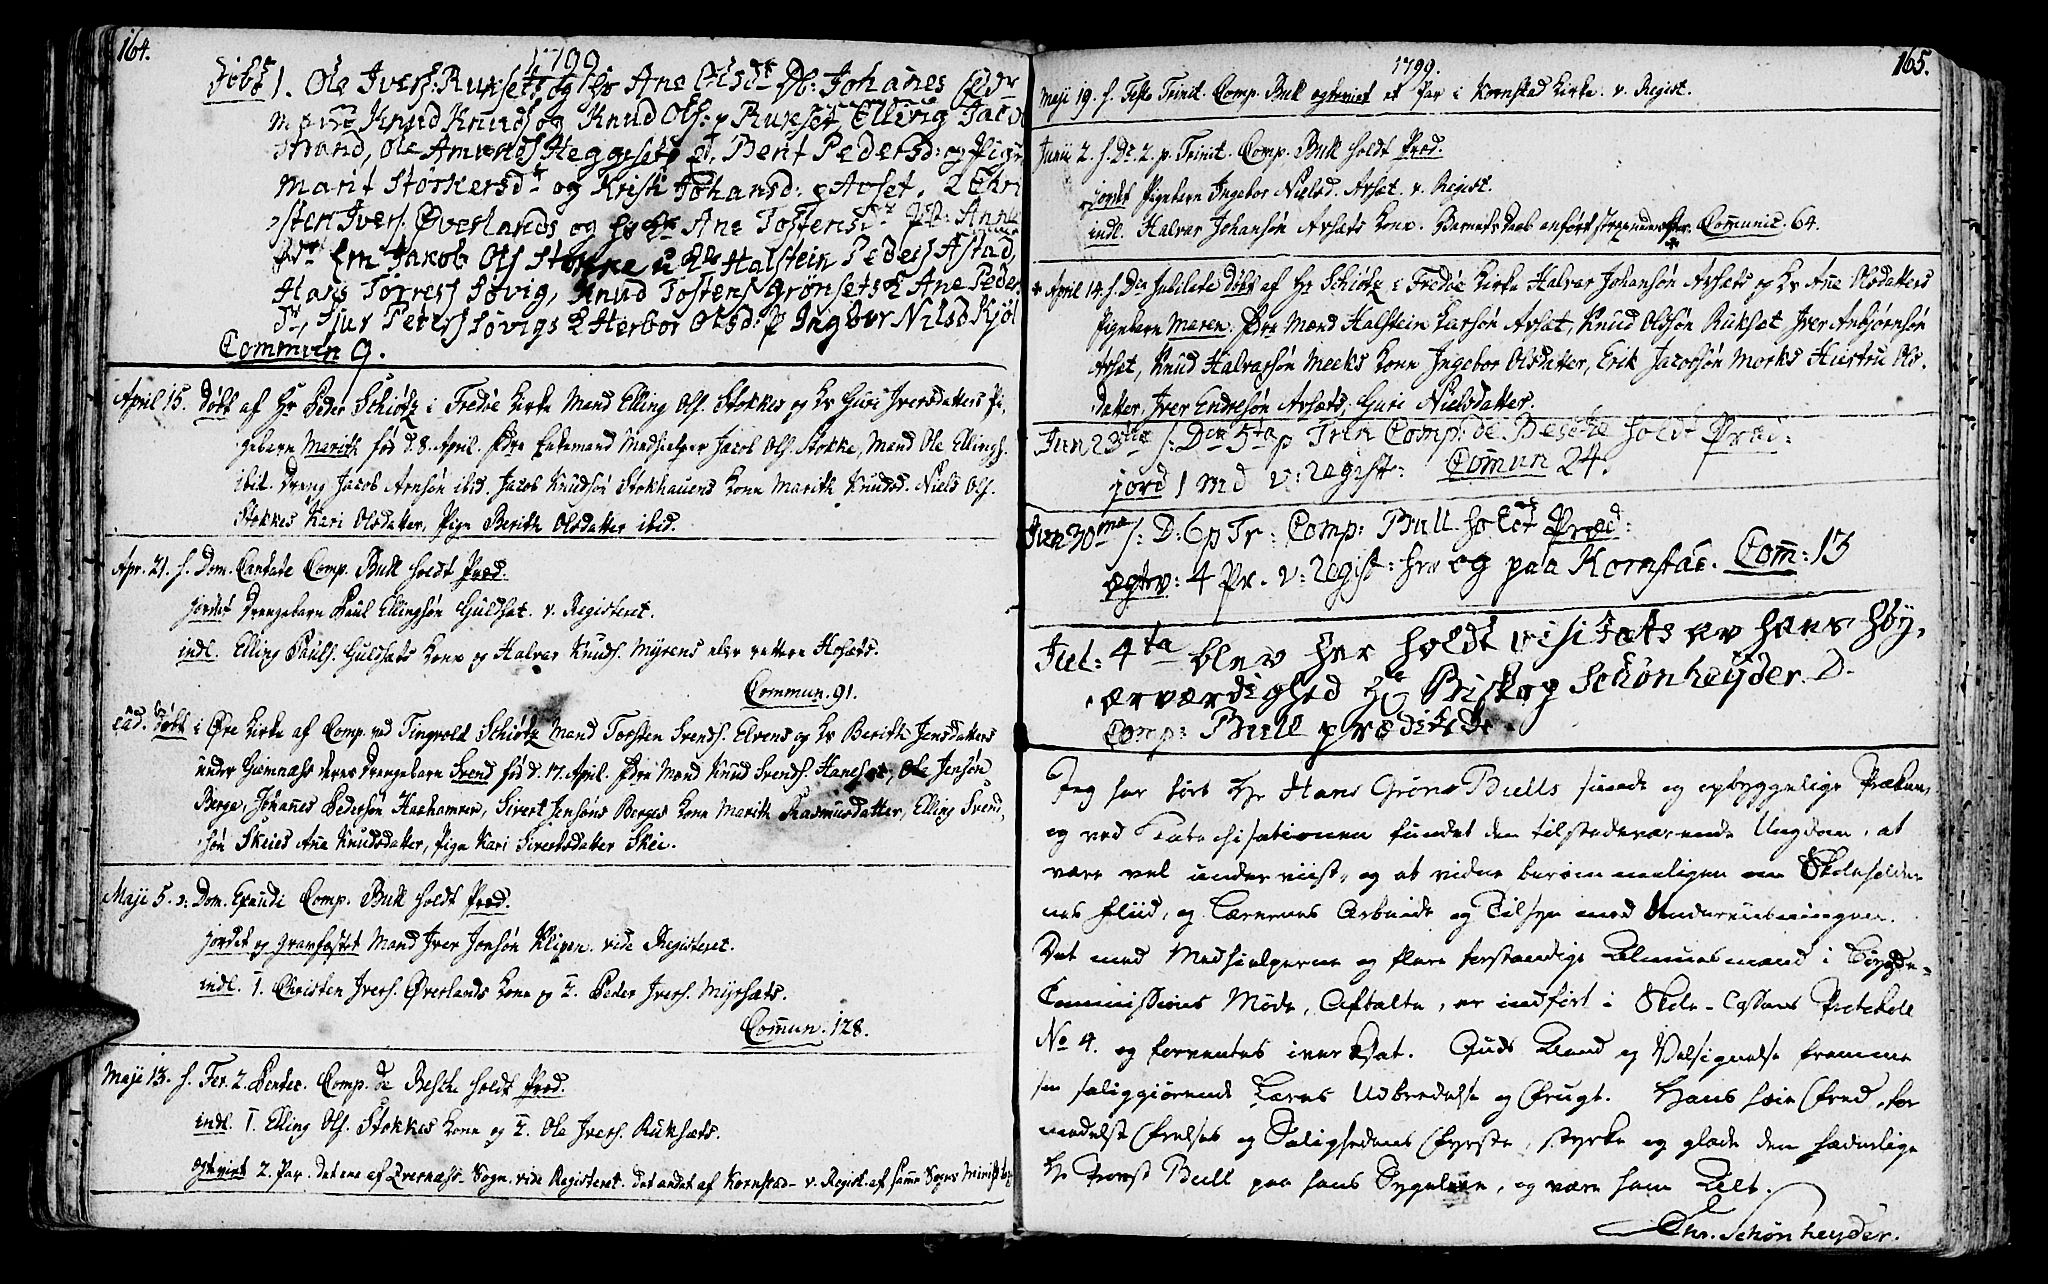 164.
1799
Døbt 1. Ole Ivers: Rukset og Ane Olsd Johanes
Knud Knuds og Knud Ols: p Rukset Elling Jacob
Strand, Ole Amunds Heggeset, Berit Pedersd: og Pig
Marit Størkersd og Kristi Johansd: p Avset. 2 Chri
sten Ivers. Øverlands og Ane Tostensd Anne
Em Jakob Ols Stokke Halstein Peders Astad,
Hans Torress Søvig, Knud Tostens Grønsets Ane Peder
dr, Siur Peders Søvigs Herbor Olsd: p Ingbor Nilsd Kjøl
Commun 9.
April 15. døbt af Hr Peder Schiøtz i Fredøe Kirke Mand Elling Ols. Stokkes og Hu Guri Iversdatters Pi-
gebarn Marith fød d. 8. April. Enkemand Medhielper Jacob Ols. Stokke, Mand Ole Ellings.
ibid. Dreng Jacob Arnsøn ibid. Jacob Knudsøn Stokhauens Kone Marith Knudsd. Niels Ols.
Stokkes Kari Olsdatter, Pige Berith Olsdatter ibid.
Apr. 21. s. Dom. Cantate Comp. Bull holdt Præd.
jordet Drengebarn Paul Ellingsøn Guldsæt. v. Registeret.
indl. Elling Pauls. Guldsæts Kone og Halvar Knuds. Myrens eller rettere Hosæts.
Commun. 91.
eâd. døbt i Øre Kirke af Comp. ved Tingvold Schiøtz Mand Torsten Svends. Elvens og Hu Berith Jensdatters
under Giemnæss deres Drengebarn Svend fød d. 17. April. Mand Knud Svends. Ole Jensøn
Berge, Johannes Pedersøn Høehamer, Sivert Jensøns Berges Kone Marith Rasmusdatter, Elling Svend-
søn Skeies Ane Knudsdatter, Pige Kari Sivertsdatter Skei.
Maji 5. Dom. Exaudi Comp. Bull holdt Præd.
jordet og gravfæstet Mand Iver Jonsøn Klipen. vide Registeret.
indl. 1. Christen Ivers. Øverlands Kone og 2. Peder Ivers. Myrsæts.
Commun. 128.
Maji 13. s. Fer. 2. Pentec. Comp. de Besche holdt Præd.
indl. 1. Elling Ols. Stokkes Kone og 2. Ole Ivers. Ruksæts.
Ægteviet 2. Par. det ene af Qvernæss-Sogn. vide Registeret. det andet af Kornstad- v. Regist. af samme Sogns
165.
1799.
Maji 19. s. Festo Trinit. Comp. Bull ægteviet et Par i Kornstad Kirke. v. Regist.
Junii 2. s. D. 2. p. Trinit. Comp. Bull holdt Præd.
jordet Pigebarn Ingebor Nielsd. Avsæt. v. Regist.
indl. Halvar Johansøn Avsæts Kone. Barnets Daab anført strax nedenfor. Communic. 64.
* April 14. s. Dca Jubilate døbt af Hr Schiøtz i Fredøe Kirke Halvar Johansøn Avsæts og Hu Ane Olsdatters
Pigebarn Maren. Mand Halstein Larsøn Avsæt, Knud Olssøn Ruksæt Iver Anbjørnsøn
Avsæt, Knud Halvarsøn Meeks Kone Ingebor Olsdatter, Erik Jacobsøn Morks Hustru Ols-
datter, Iver Endresøn Avsæts, Guri Nielsdatter.
Jun 23tia s: Dca 5ta p Trin Comp: de Besche holdt Præd:
jord 1 md v: Regist: Commun 24.
Jun 30ma s: D: 6 p Tr: Comp: Bull holdt Præd:
ægtev: 4 Pr. v: Regist: her og paa Kornstad. Com: 13
Jul: 4ta blev her holdt Visitats av Hans Høy-
ærværdighed Hr Biskop Schønheyder. D.
Comp: Bull prædikede.
Jeg har hørt Hr Hans Grøns Bulls sunde og opbyggelige Præken,
og ved Catechisationen fundet den tilstedeværende Ungdom, at
være vel underviist, og at vidne berømmeligen om Skoleholder-
nes Fliid, og Lærernes Arbeide og Tilsyn med Underviisningen.
Det med Medhielperne og flere forstandige Almuesmænd i Bøygde-
Commissions Møde, Aftalte, er indført i Skole-Cassens Protokoll
No 4. og forventes iverksat. Guds Aand og Velsignelse fremme
sin saliggiørende Læres Udbredelse og Frugt. Hans Søn Fred for
Frelses og Salighedens Fyrste, styrke og glæde den hæderlige
Hr Provst Bull paa hans Sygeleie, og være ham Alt.
Chr. Schønheyder.